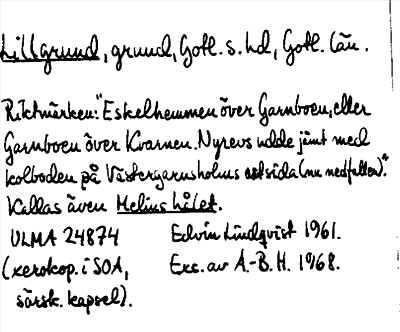 Lillgrund, grund, Gotl. s. hd, Gotl. län.
Riktmärken: "Eskelhemmen över Garnboen, eller
Garnboen över Kvarnen. Nyrevs udde jämt med
kolboden på Västergarnsholms ostsida (nu nedfallen)."
Kallas även Melins hålet.
ULMA 24874 Edvin Lindqvist 1961.
(xerokop. i SOA, Exc. av A.-B. H. 1968.
särsk. kapsel).